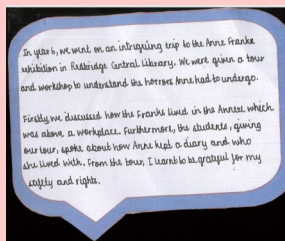 In year 6, we went on an intriguing trip to the Anne Franks
exhibition in Redbridge Central Library. We were given a tour
and workshop to understand the horrors Anne had to undergo.
Firstly, we discussed how the Franks lived in the Annex which
was above a workplace. Furthermore, the students, giving
our tour, spoke about how Anne kept a diary and who
she lived with. From the tour, I learnt to be grateful for my
safety and rights.